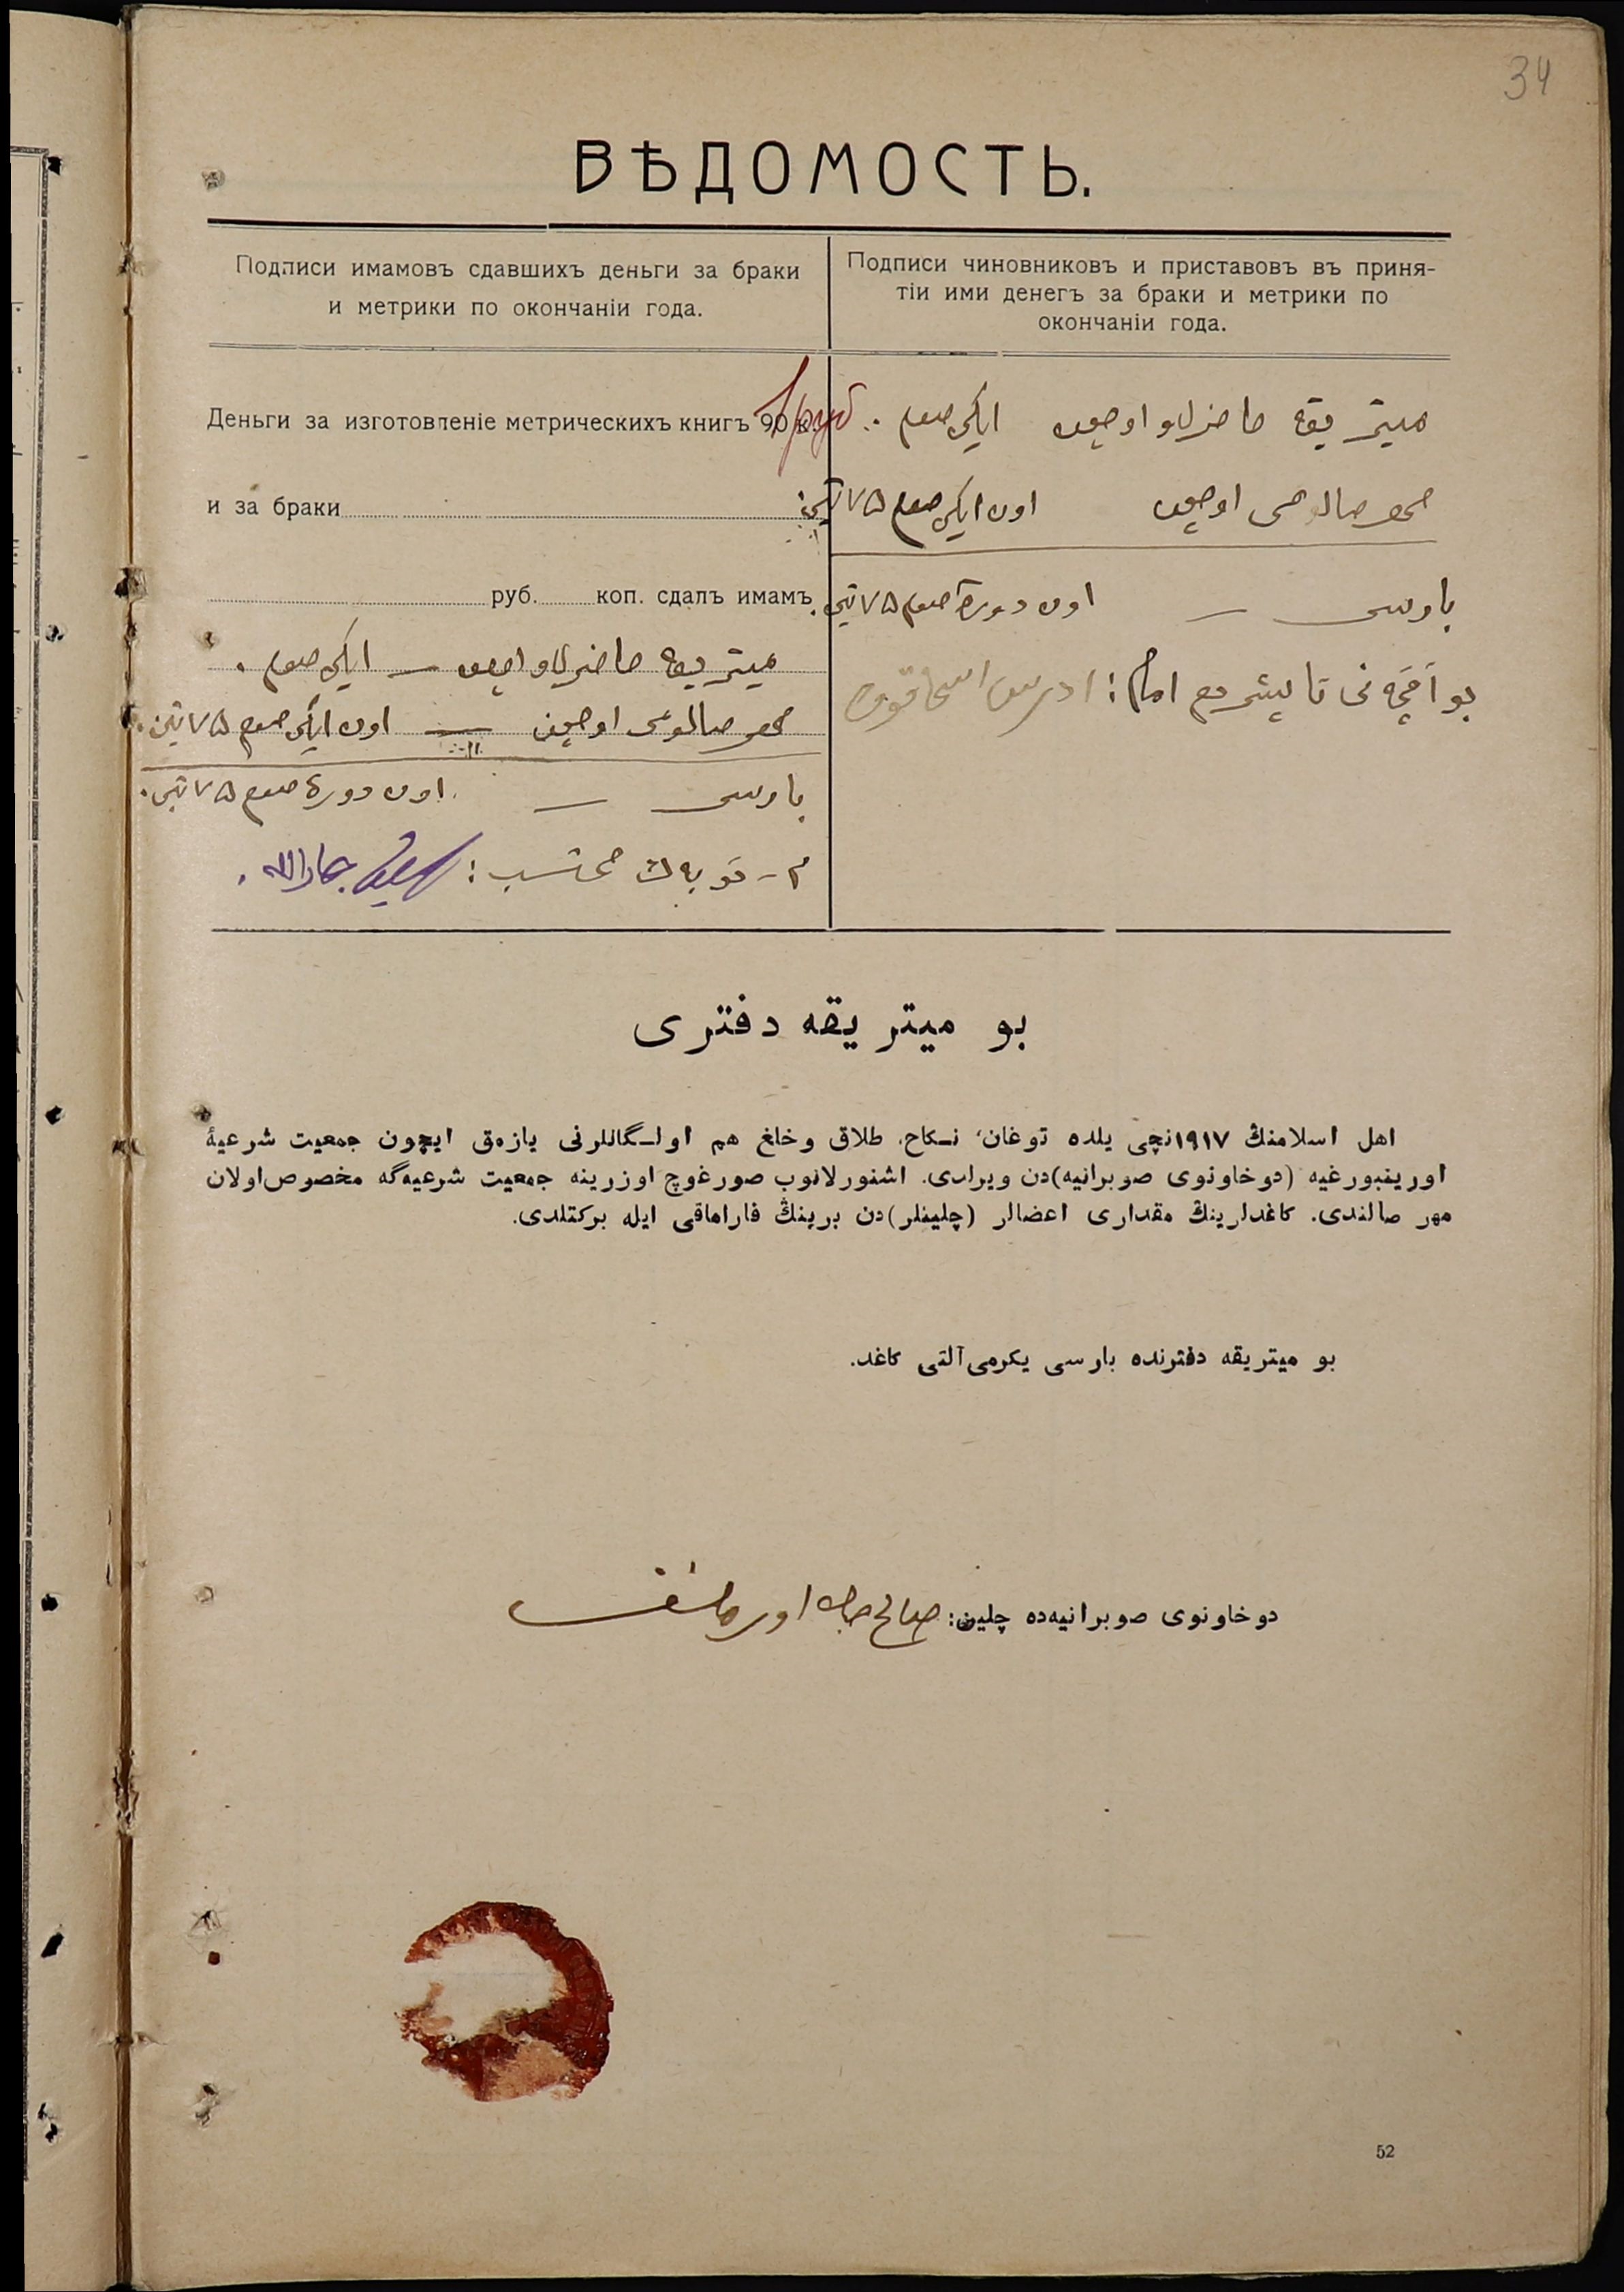 34
ВѢДОМОСТЬ.
Подписи имамовъ сдавшихъ деньги за браки
и метрики по окончаніи года.
Подписи чиновниковъ и приставовъ въ приня-
тіи ими денегъ за браки и метрики по
окончаніи года.
Деньги за изготовленіе метрическихъ книгъ 90 к. 1 руб
и за браки
руб. коп. сдалъ имамъ
میتریقه حاضرلاو اوچون — ایکی صوم.
اوچون — اون ایکی صوم ٧٥ تین.
بارسی — اون دورت صوم ٧٥ تین.
محتسب: جارالله.
میتریقه حاضرلاو اوچون ایکی صوم.
اوچون اون ایکی صوم ٧٥ تین.
بارسی — اون دورت صوم ٧٥ تین.
بو آقچه نی تابشردم امام: ادریس اسحاقوف
بو میتریقه دفتری
اهل اسلامنڭ ١٩١٧نچی یلده توغان، نـکاح، طلاق وخلغ هم اولـگانلرنی یازمق ایچون جمعیت شرعیۀ
اورینبورغیه (دوخاونوی صوبرانیه)دن ویرلدی. اشنورلانوب صورغوچ اوزرینه جمعیت شرعیه‌گه مخصوص اولان
مهر صالندی. کاغدلرینڭ مقداری اعضالر (چلینلر)دن برینڭ قاراماقی ایله برکتلدی.
بو میتریقه دفترنده بارسی یکرمی آلتی کاغد.
دوخاونوی صوبرانیه‌ده چلین: صالح
52